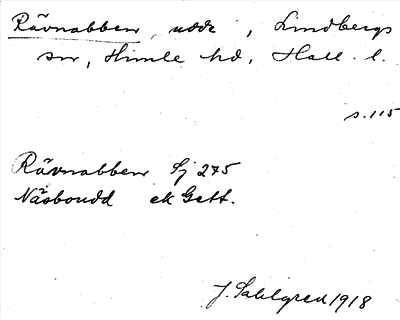 Rävnabben, udde, Lindbergs
sn, Himle hd, Hall. l.
s. 115
Rävnabben Sj 275
Näsboudd ek Gett.
J. Sahlgren 1918